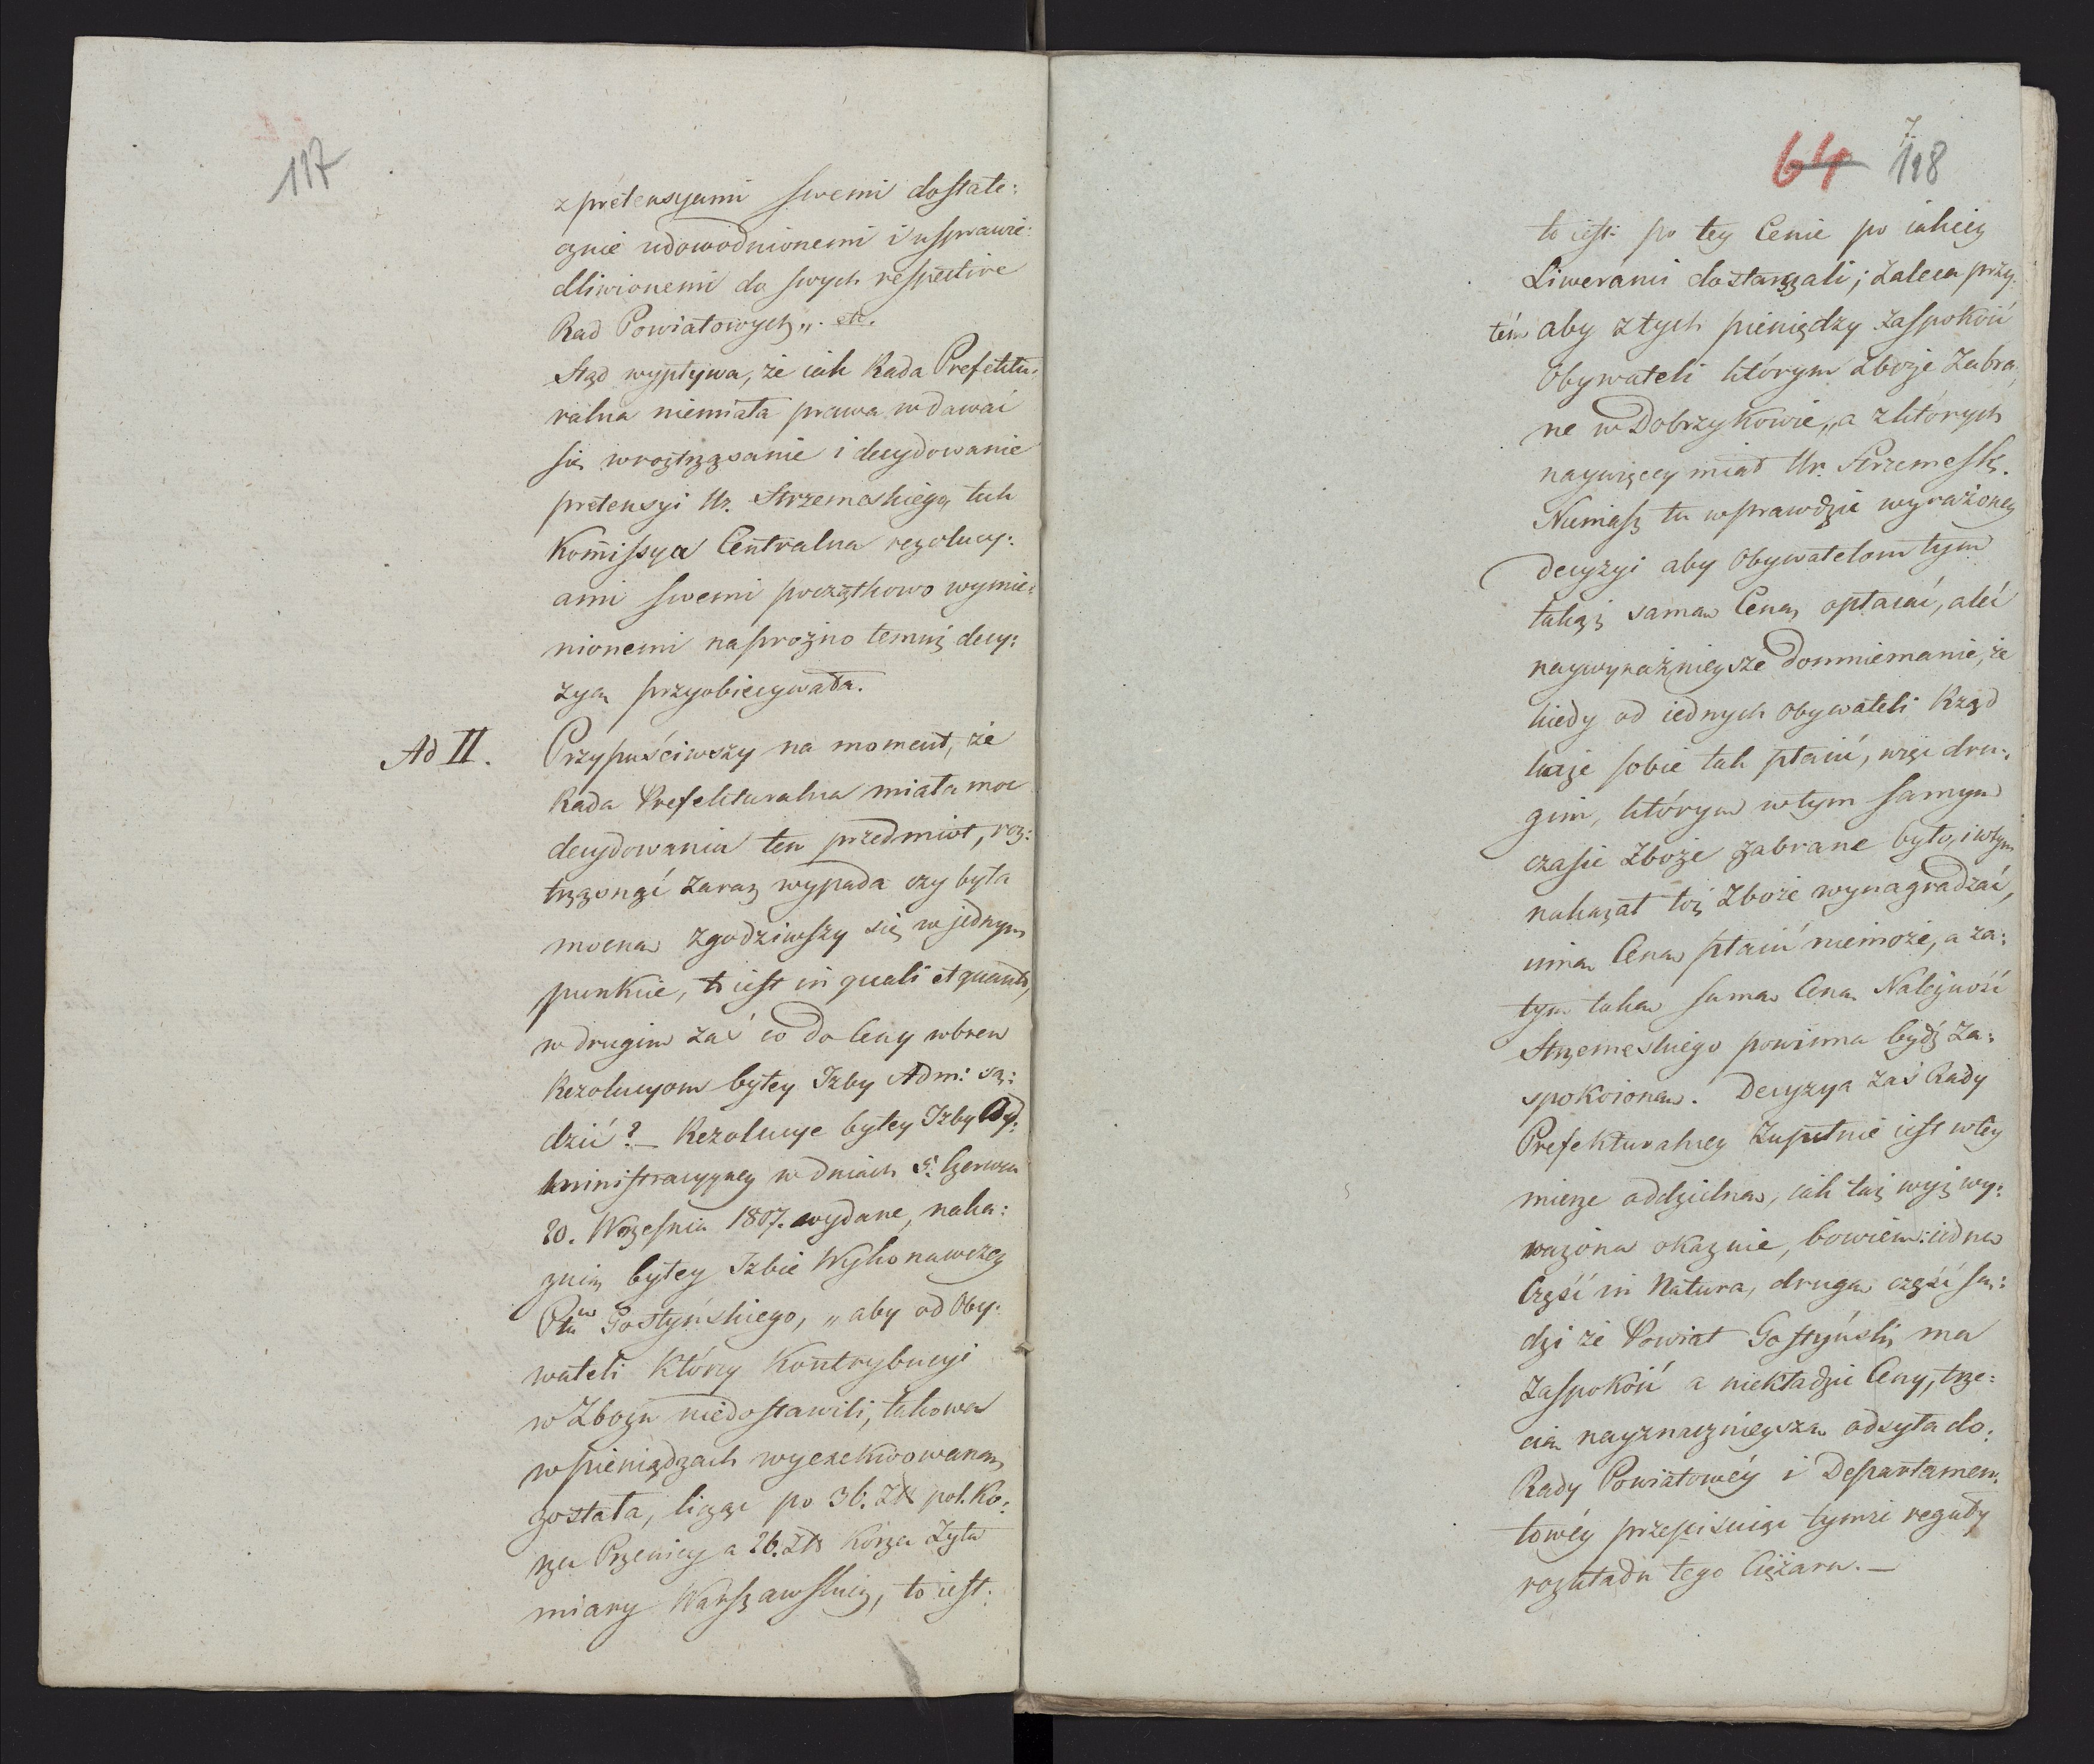 117
z pretensyami swemi dostate:
cznie udowodnionemi i usprawie:
dliwionemi do swych respective
Rad Powiatowych„. etc.
Ztąd wypływa, że iak Rada Prefektu:
ralna niemiała prawa wdawać
się wroztrząsanie i decydowanie
pretensyi Ur. Strzemeskiego, tak
Kommissya Centralna rezolucy:
ami swemi początkowo wymie:
nionemi naprożno temuż decy:
zyą przyobiecywała.
Ad II. Przypuściwszy na moment, że
Rada Prefekturalna miała moc
decydowania ten przedmiot, roz:
trząsnąć zaraz wypada czy była
mocna zgodziwszy się w jednym
punkcie, to iest in quali et quanto,
w drugim zaś co do Ceny wbrew
Rezolucyom byłey Izby Adm: są:
dzić? — Rezolucye byłey Izby Ad:
ministracyyney w dniach 5. Czerwca
20. Września 1807. wydane, naka:
zuią byłey Izbie Wykonawczey
Ptu Gostyńskiego, „aby od Oby:
wateli którzy Kontrybucyi
w Zbożu niedostawili, takowa
w pieniądzach wyexekwowaną
została, licząc po 36. Zł. pol. Ko:
rzec Przenicy a 26. Zł. Korzec Żyta
miary Warszawskiey, to iest:
64 7. 118
to iest: po tey Cenie po iakiey
Liweranci dostarzali; zaleca przy:
tém aby z tych pieniędzy zaspokoić
Obywateli którym zboże zabra:
ne w Dobrzykowie„ a z których
naywięcey miał Ur. Strzemeski.
Niemasz tu wprawdzie wyrażoney
decyzyi aby Obywatelom tym
takąż samą Cenę opłacać, aleć
naywyraźnieysze domniemanie, że
kiedy od iednych Obywateli Rząd
każe sobie tak płacić, więc dru:
gim, którym w tym samym
czasie Zboże zabrane było, i w tym
nakazał toż Zboże wynagradzać,
inną Ceną płacić niemoże, a za:
tym taką samą Ceną Należność
Strzemeskiego powinna bydź za:
spokoioną. Decyzya zaś Rady
Prefekturalney zupełnie iest w tey
mierze oddzielna, iak też wyż wy:
rażona okazuie, bowiem: iedną
Część in Natura, drugą część są:
dzi że Powiat Gostyński ma
zaspokoić a niekładzie Ceny, trze:
cią nayznacznieyszą odsyła do:
Rady Powiatowéy i Departamen:
towéy przepisuiąc tymże reguły
rozkładu tego Ciężaru. —